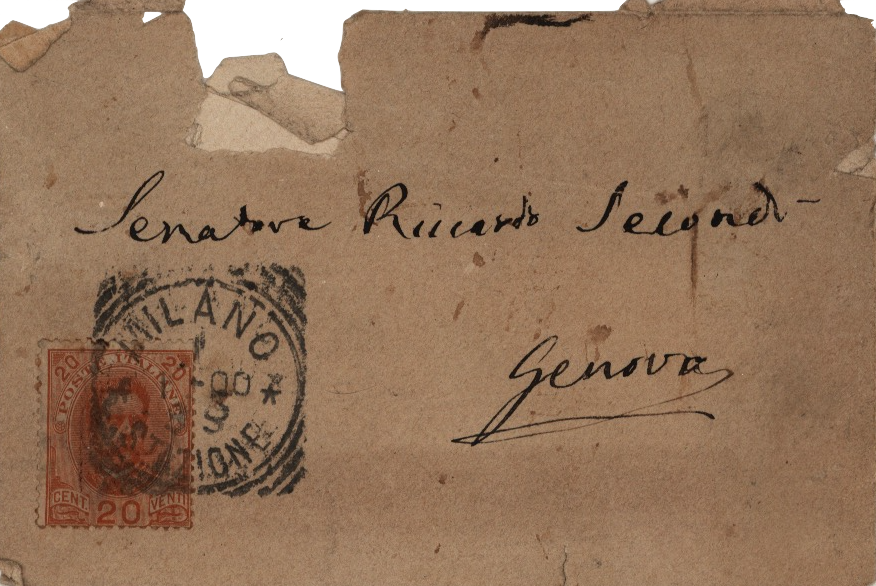 Senatore Riccardo Secondi
Genova
MILANO
00
20 20
POSTE ITALIANE
CENT. 20 VENTI